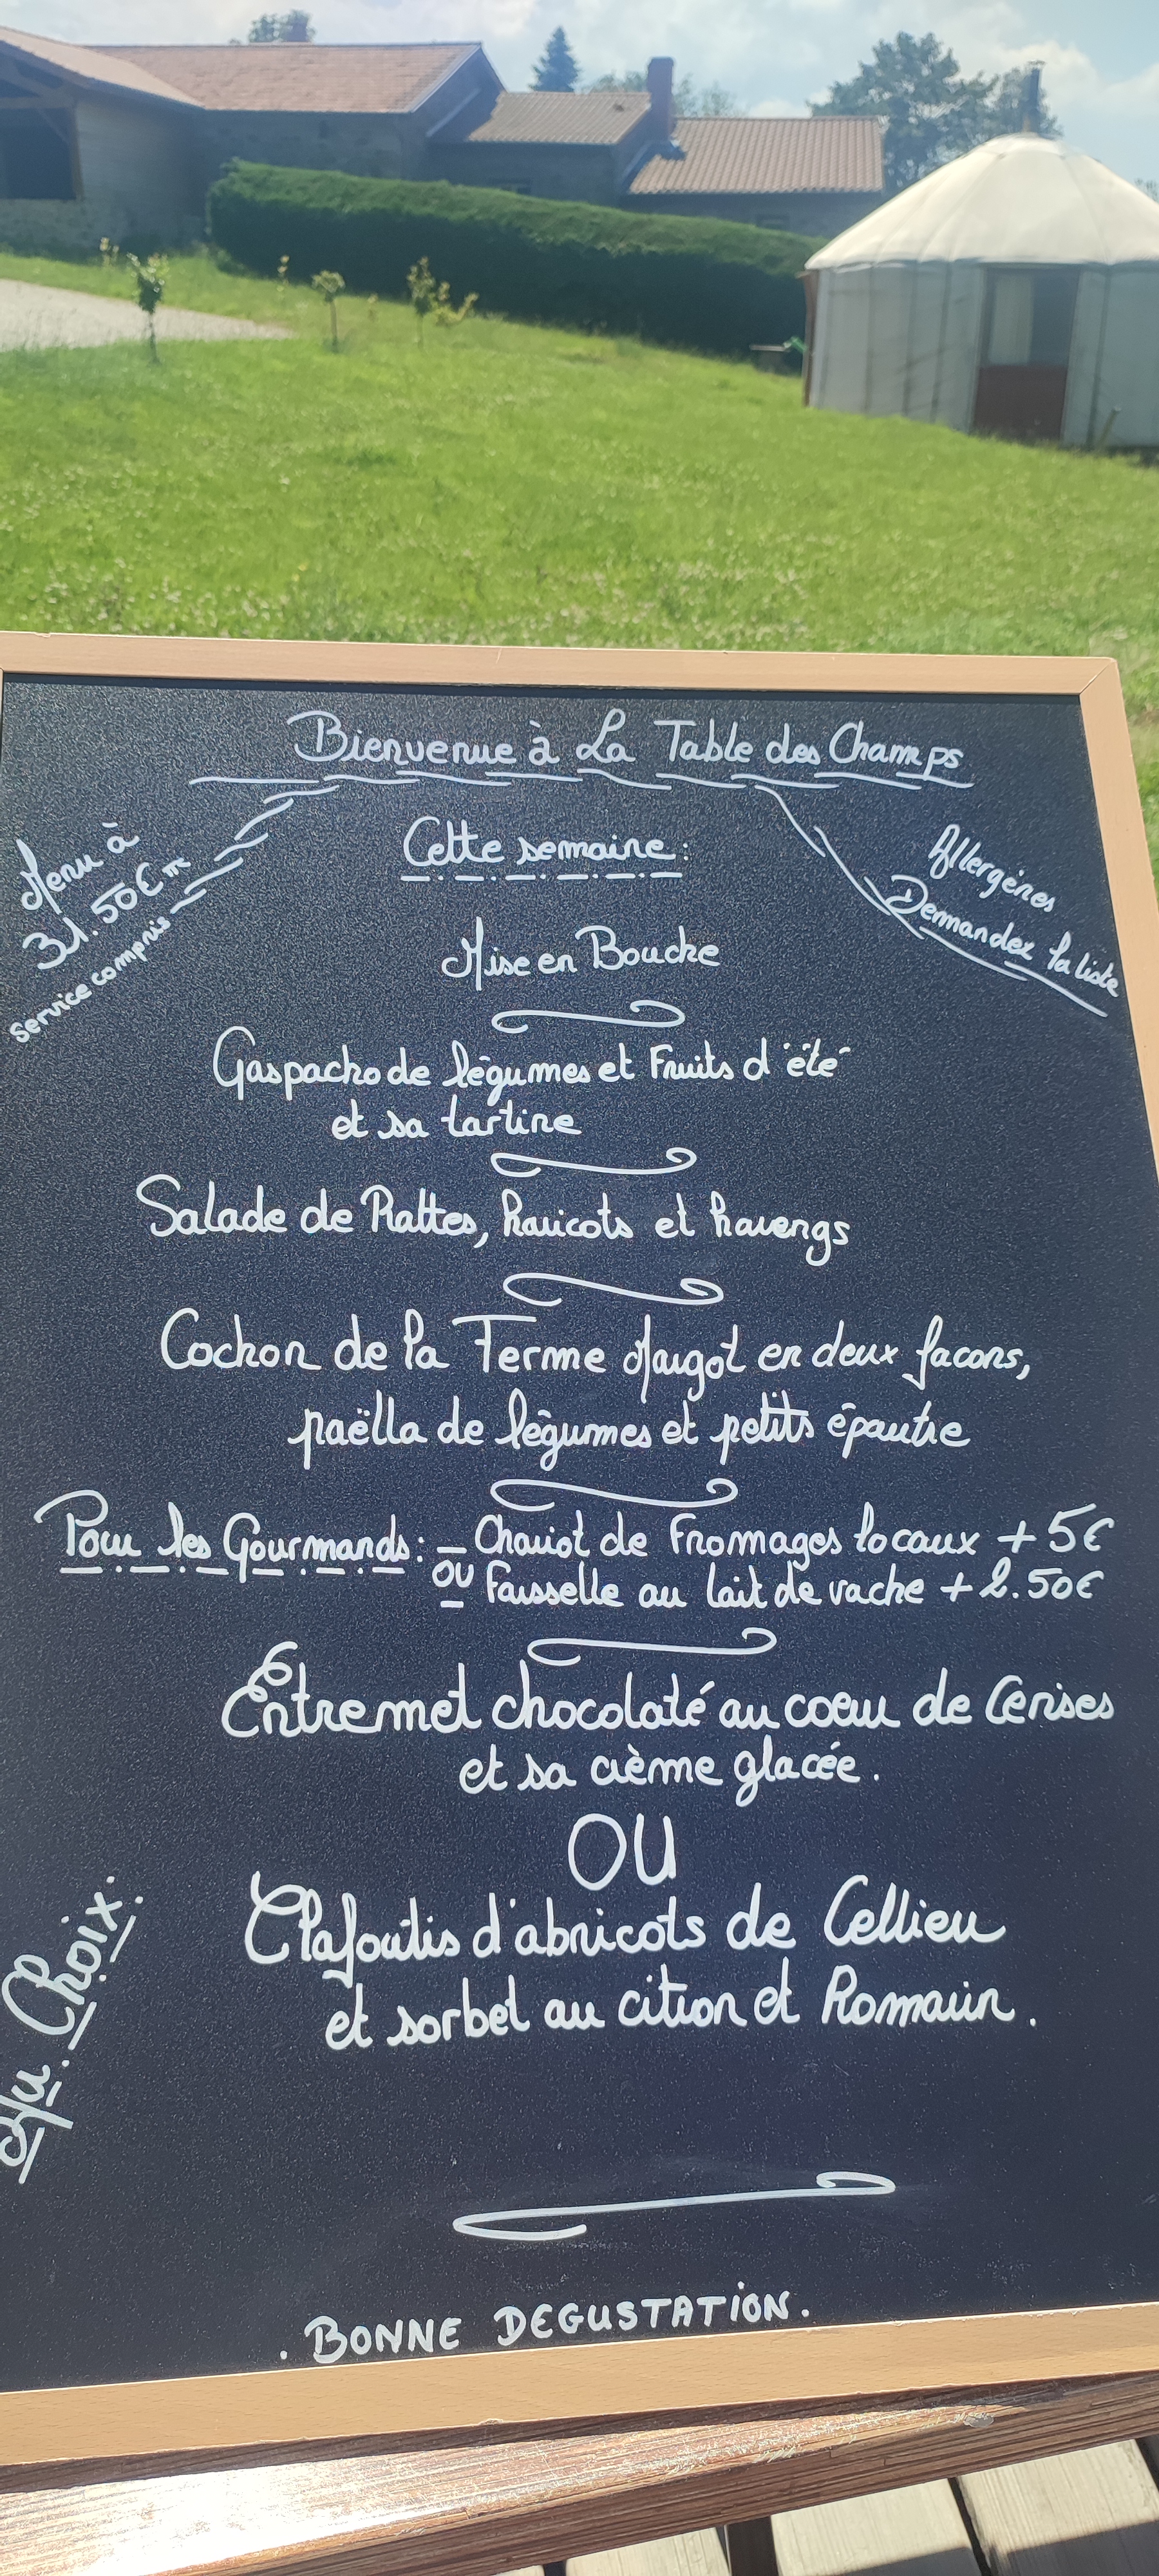 Bienvenue à La Table des Champs
Menu à
31.50€ TTC
service compris
Cette semaine:
Allergènes
Demandez la liste
Mise en Bouche
Gaspacho de légumes et Fruits d'été
et sa tartine
Salade de Rattes, haricots et harengs
Cochon de la Ferme Margot en deux facons,
paëlla de légumes et petits épautre
Pour les Gourmands: - Chariot de Fromages locaux + 5€
OU Faisselle au lait de vache + 2.50€
Entremet chocolaté au coeur de Cerises
et sa crème glacée.
OU
Au Choix:
Clafoutis d'abricots de Cellieu
et sorbet au citron et Romarin.
. BONNE DEGUSTATION.